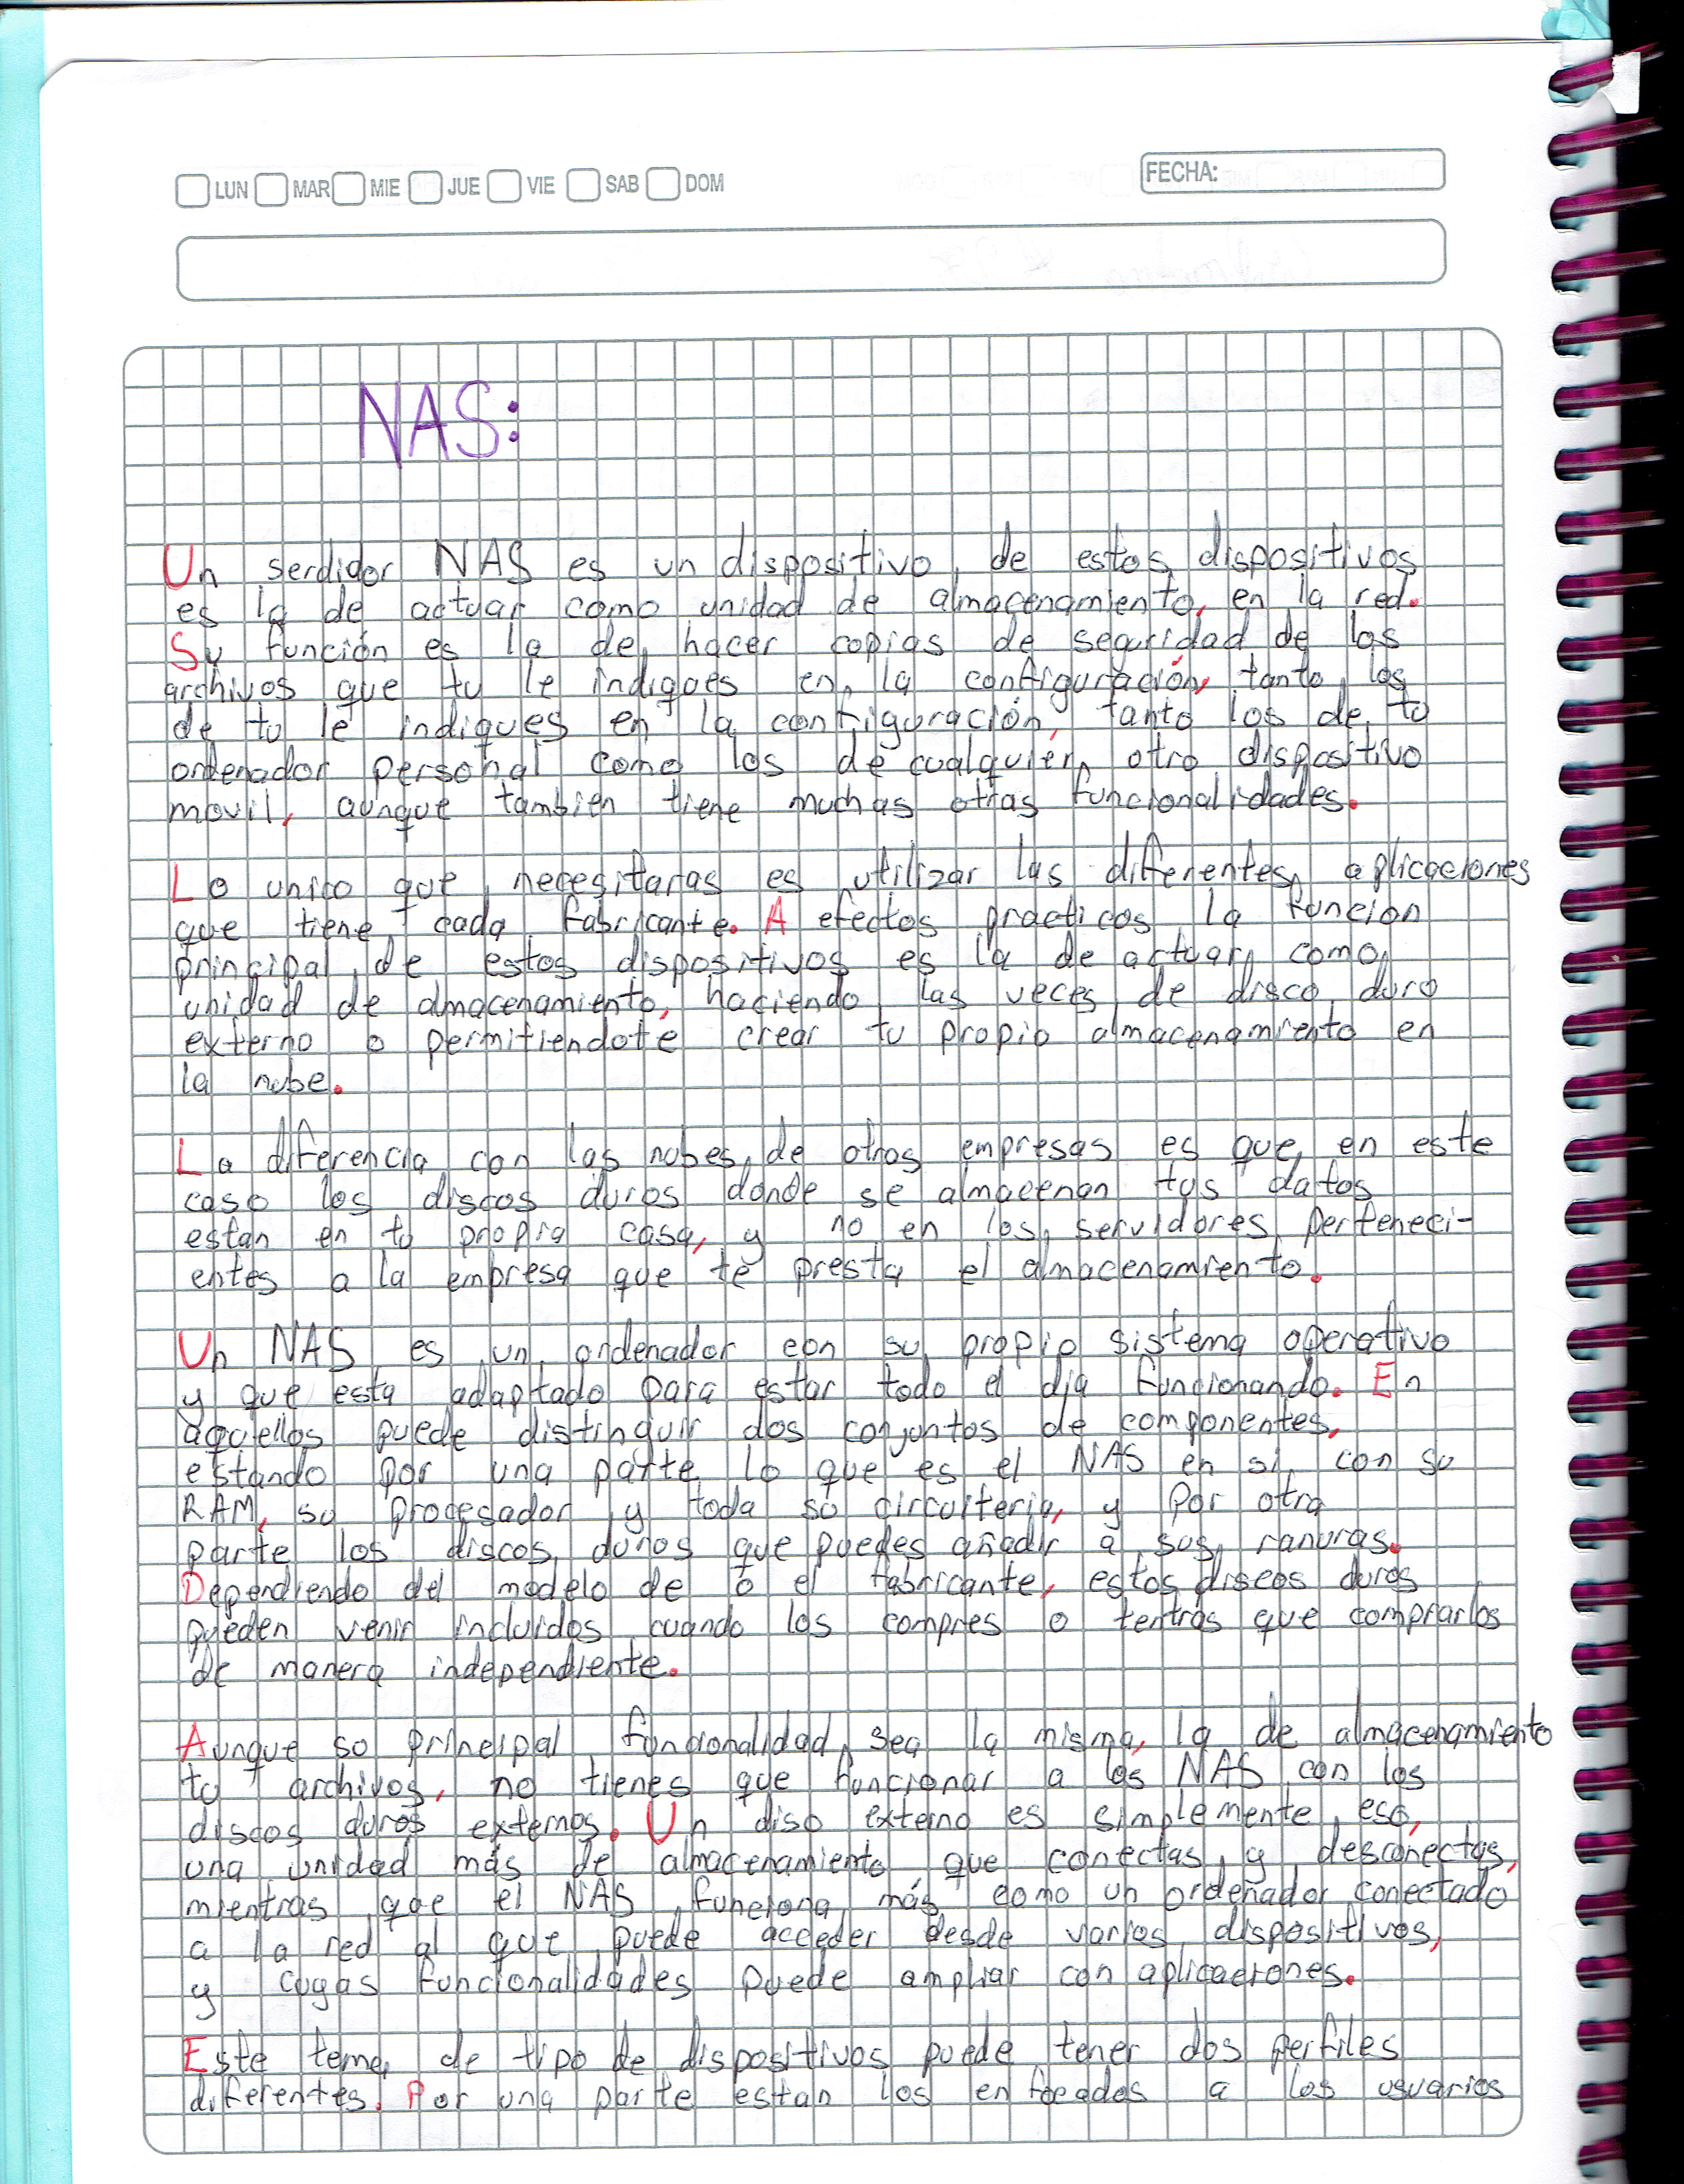 LUN MAR MIE JUE VIE SAB DOM FECHA:
NAS:
Un serdidor NAS es un dispositivo, de estos dispositivos
es la de actuar como unidad de almacenamiento, en la red.
Su función es la de hacer copias de seguridad de los
archivos que tu le indiques en la configuración, tanto los
de tu le indiques en la configuración, tanto los de tu
ordenador personal como los de cualquier otro dispositivo
movil, aunque tambien tiene muchas otras funcionalidades.
Lo unico que necesitaras es utilizar las diferentes aplicaciones
que tiene cada fabricante. A efectos practicos la funcion
principal de estos dispositivos es la de actuar como
unidad de almacenamiento, haciendo las veces de disco duro
externo o permitiendote crear tu propio almacenamiento en
la nube.
La diferencia con las nubes de otras empresas es que en este
caso los discos duros donde se almacenan tus datos
estan en tu propia casa, y no en los servidores perteneci-
entes a la empresa que te presta el almacenamiento.
Un NAS es un ordenador con su propio sistema operativo
y que esta adaptado para estar todo el dia funcionando. En
aquellos puede distinguir dos conjuntos de componentes,
estando por una parte lo que es el NAS en si, con su
RAM, su procesador y toda su circuiteria, y por otra
parte los discos duros que puedes añadir a sus ranuras.
Dependiendo del modelo de o el fabricante, estos discos duros
pueden venir incluidos cuando los compres o tentras que comprarlos
de manera independiente.
Aunque su principal funcionalidad sea la misma, la de almacenamiento
tu archivos, no tienes que funcionar a los NAS con los
discos duros externos. Un diso externo es simplemente eso,
una unidad más de almacenamiento que conectas y desconectas,
mientras que el NAS funciona más como un ordenador conectado
a la red al que puede acceder desde varios dispositivos,
y cuyas funcionalidades puede ampliar con aplicaciones.
Este tema de tipo de dispositivos puede tener dos perfiles
diferentes. Por una parte estan los enfocados a los usuarios